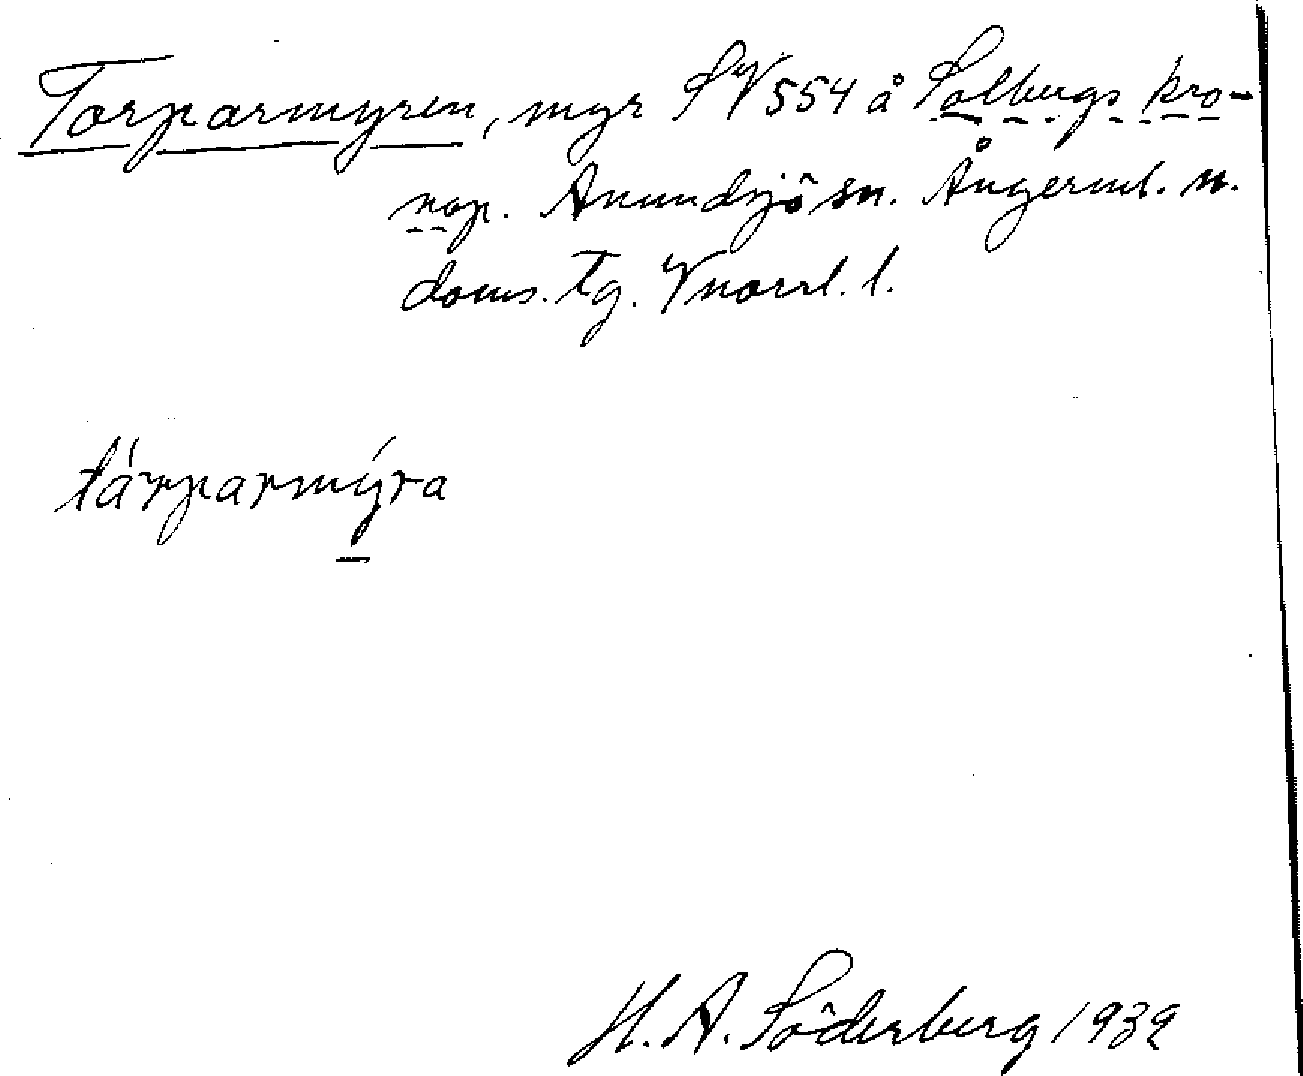 Torparmyren, myr SV 554 å Solbergs kro-
nop. Anundsjö sn. Ångerml. n.
doms. tg. Vnorrl. l.
tárparmýra
H. A. Söderberg 1939